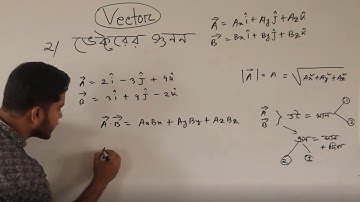 Vector
2) ভেক্টরের গুনন
A⃗ = 2î - 3ĵ + 4k̂
B⃗ = 3î + 4ĵ - 2k̂
A⃗·B⃗ = AxBx + AyBy + AzBz
A⃗ = Axî + Ayĵ + Azk̂
B⃗ = Bxî + Byĵ + Bzk̂
|A⃗| = A = √Ax²+Ay²+Az²
A⃗
B⃗
মান